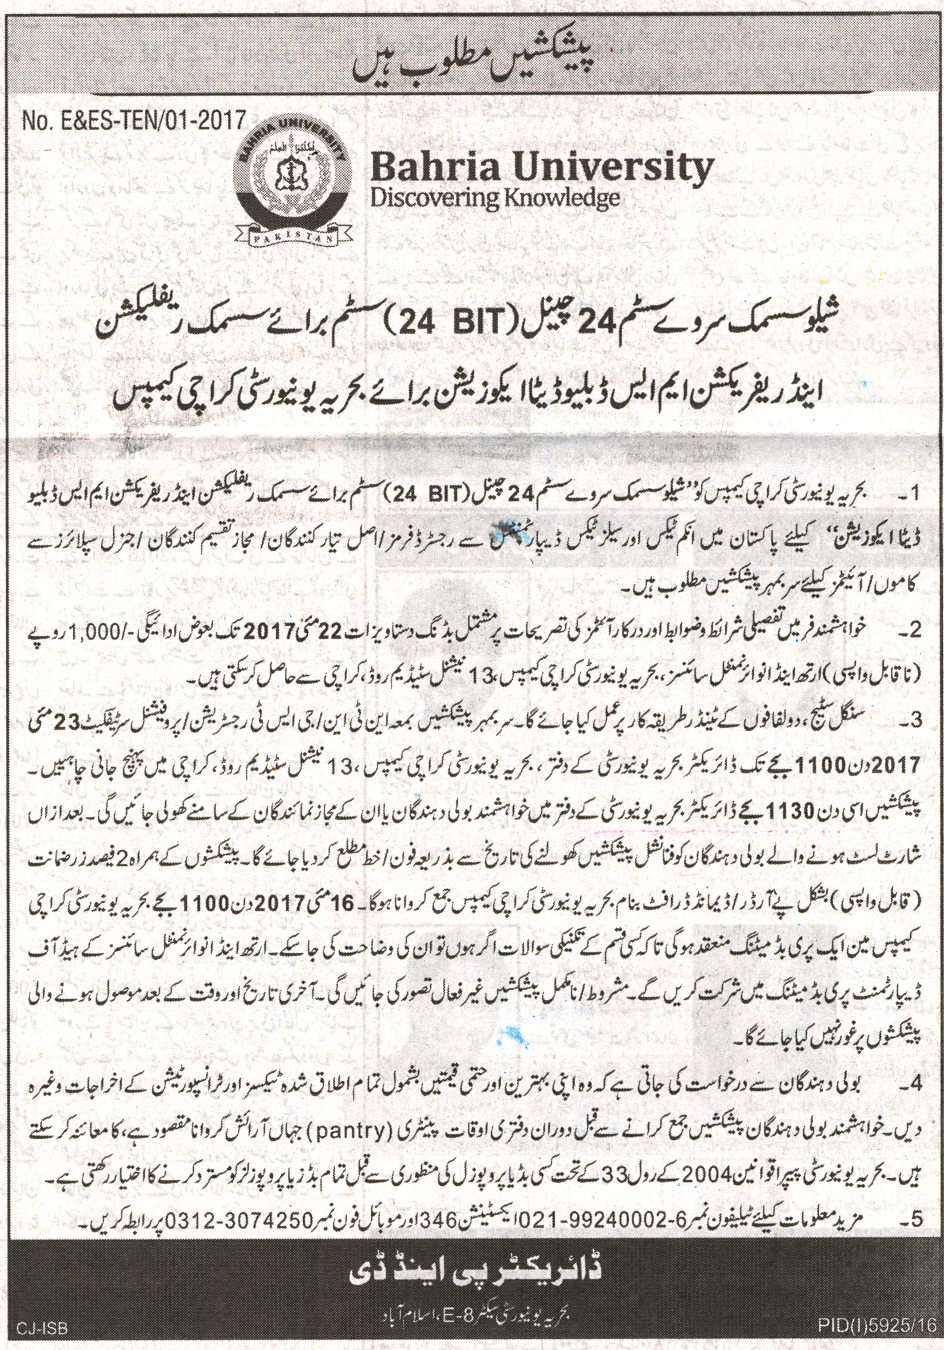 پیشکشیں مطلوب ہیں
No. E&ES-TEN/01-2017
BAHRIA UNIVERSITY
PAKISTAN
Bahria University
Discovering Knowledge
شیلو سسمک سروے سسٹم 24 چینل (24 BIT) سسٹم برائے سسمک ریفلیکشن
اینڈ ریفریکشن ایم ایس ڈبلیو ڈیٹا ایکوزیشن برائے بحریہ یونیورسٹی کراچی کیمپس
1۔ بحریہ یونیورسٹی کراچی کیمپس کو ”شیلو سسمک سروے سسٹم 24 چینل (24 BIT) سسٹم برائے سسمک ریفلیکشن اینڈ ریفریکشن ایم ایس ڈبلیو
ڈیٹا ایکوزیشن“ کیلئے پاکستان میں انکم ٹیکس اور سیلز ٹیکس ڈیپارٹمنٹس سے رجسٹرڈ فرمز/اصل تیار کنندگان/مجاز تقسیم کنندگان/جنرل سپلائرز سے
کاموں/آئیٹمز کیلئے سربمہر پیشکشیں مطلوب ہیں۔
2۔ خواہشمند فرمیں تفصیلی شرائط و ضوابط اور درکار آئٹمز کی تصریحات پر مشتمل بڈنگ دستاویزات 22 مئی 2017 تک بعوض ادائیگی -/1,000 روپے
(ناقابل واپسی) ارتھ اینڈ انوائرنمنٹل سائنسز، بحریہ یونیورسٹی کراچی کیمپس، 13 نیشنل سٹیڈیم روڈ، کراچی سے حاصل کر سکتی ہیں۔
3۔ سنگل سٹیج، دو لفافوں کے ٹینڈر طریقہ کار پر عمل کیا جائے گا۔ سربمہر پیشکشیں بمعہ این ٹی این/جی ایس ٹی رجسٹریشن/پروفیشنل سرٹیفکیٹ 23 مئی
2017 دن 1100 بجے تک ڈائریکٹر بحریہ یونیورسٹی کے دفتر، بحریہ یونیورسٹی کراچی کیمپس، 13 نیشنل سٹیڈیم روڈ، کراچی میں پہنچ جانی چاہیئیں۔
پیشکشیں اسی دن 1130 بجے ڈائریکٹر بحریہ یونیورسٹی کے دفتر میں خواہشمند بولی دہندگان یا ان کے مجاز نمائندگان کے سامنے کھولی جائیں گی۔ بعد ازاں
شارٹ لسٹ ہونے والے بولی دہندگان کو فنانشل پیشکشیں کھولنے کی تاریخ سے بذریعہ فون/خط مطلع کر دیا جائے گا۔ پیشکشوں کے ہمراہ 2 فیصد زر ضمانت
(قابل واپسی) بشکل پے آرڈر/ڈیمانڈ ڈرافٹ بنام بحریہ یونیورسٹی کراچی کیمپس جمع کروانا ہو گا۔ 16 مئی 2017 دن 1100 بجے بحریہ یونیورسٹی کراچی
کیمپس مین ایک پری بڈ میٹنگ منعقد ہو گی تاکہ کسی قسم کے تکنیکی سوالات اگر ہوں تو ان کی وضاحت کی جا سکے۔ ارتھ اینڈ انوائرنمنٹل سائنسز کے ہیڈ آف
ڈیپارٹمنٹ پری بڈ میٹنگ میں شرکت کریں گے۔ مشروط/نامکمل پیشکشیں غیر فعال تصور کی جائیں گی۔ آخری تاریخ اور وقت کے بعد موصول ہونے والی
پیشکشوں پر غور نہیں کیا جائے گا۔
4۔ بولی دہندگان سے درخواست کی جاتی ہے کہ وہ اپنی بہترین اور حتمی قیمتیں بشمول تمام اطلاق شدہ ٹیکسز اور ٹرانسپورٹیشن کے اخراجات وغیرہ
دیں۔ خواہشمند بولی دہندگان پیشکشیں جمع کرانے سے قبل دوران دفتری اوقات پینٹری (pantry) جہاں آرائش کروانا مقصود ہے، کا معائنہ کر سکتے
ہیں۔ بحریہ یونیورسٹی پیپرا قوانین 2004 کے رول 33 کے تحت کسی بڈ یا پروپوزل کی منظوری سے قبل تمام بڈز یا پروپوزلز کو مسترد کرنے کا اختیار رکھتی ہے۔
5۔ مزید معلومات کیلئے ٹیلیفون نمبر 6-99240002-021 ایکسٹینشن 346 اور موبائل فون نمبر 0312-3074250 پر رابطہ کریں۔
ڈائریکٹر پی اینڈ ڈی
بحریہ یونیورسٹی سیکٹر E-8، اسلام آباد
CJ-ISB
PID(I)5925/16